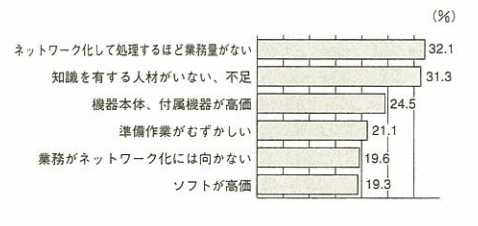 (%)
ネットワーク化して処理するほど業務量がない 32.1
知識を有する人材がいない、不足 31.3
機器本体、付属機器が高価 24.5
準備作業がむずかしい 21.1
業務がネットワーク化には向かない 19.6
ソフトが高価 19.3